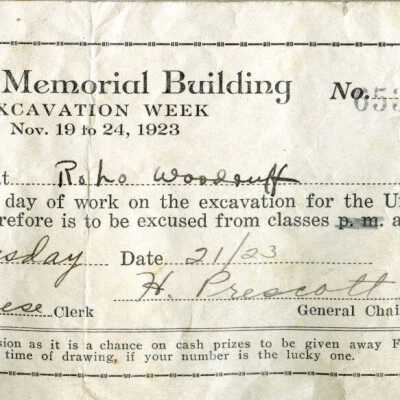 Memorial Building No. 053
EXCAVATION WEEK
Nov. 19 to 24, 1923
t Woodruff
day of work on the excavation for the U
refore is to be excused from classes p. m. a
sday Date 21/23
H. Prescott
ese Clerk General Chai
sion as it is a chance on cash prizes to be given away F
time of drawing, if your number is the lucky one.